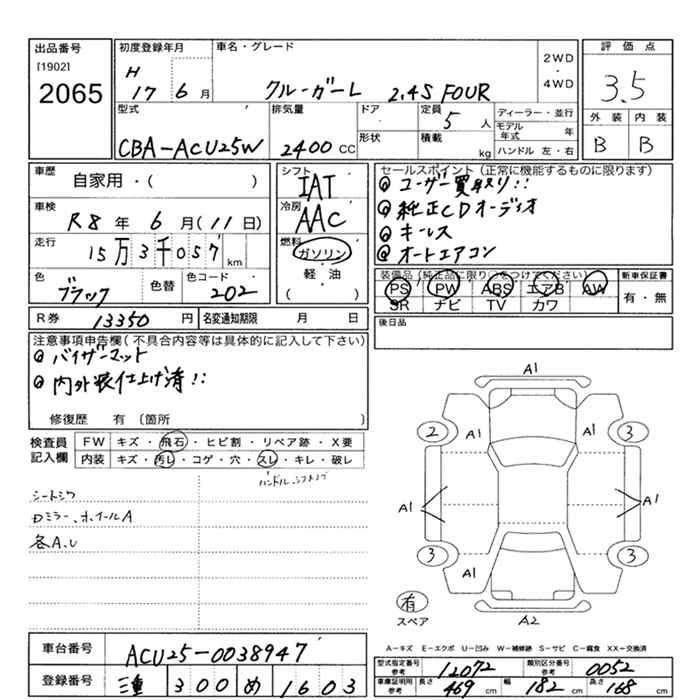 出品番号
[1902]
2065
初度登録年月
H
17 6月
車名・グレード
クルーガーL 2.4S FOUR
2WD
・
4WD
評価点
3.5
外装 内装
B B
型式
CBA-ACU25W
排気量
2400 CC
ドア
形状
定員
5 人
積載
kg
ディーラー・並行
モデル年式 年
ハンドル 左・右
車歴
自家用・( )
車検
R8年 6月(11日)
走行
15万3千057 km
色
ブラック
色替
色コード
202
シフト
IAT
冷房
AAC
燃料
ガソリン
・
軽・油
・
( )
セールスポイント(正常に機能するものに限ります)
◎ユーザー買取り!!
◎純正CDオーディオ
◎キーレス
◎オートエアコン
装備品(純正品に限り○をつけて下さい)
PS PW ABS エアB AW
SR ナビ TV カワ
新車保証書
有・無
R券 13350 円
名変通知期限 月 日
後日品
注意事項申告欄(不具合内容等は具体的に記入して下さい)
◎バイザーマット
◎内外装仕上げ済!!
修復歴 有 〔箇所 〕
検査員
記入欄
FW キズ・飛石・ヒビ割・リペア跡・X要
内装 キズ・汚レ・コゲ・穴・スレ・キレ・破レ
ハンドル、シフトノブ
シートシワ
Dミラー、ホイールA
各A、U
A1
2 A1 A1 3
A1 A1
3 A1 3
有
スペア
A2
A-キズ E-エクボ U-凹み W-補修跡 S-サビ C-腐食 XX-交換済
車台番号
ACU25-0038947
登録番号
三重 300 め 1603
型式指定番号
参考
12072
類別区分番号
参考
0052
車庫証明用
参考
長さ 469 cm
幅 182 cm
高さ 168 cm